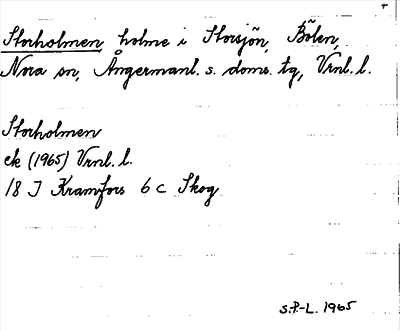 Storholmen, holme i Storsjön, Bölen,
Nora sn, Ångermanl. s. doms. tg, Vrnl. l.
Storholmen
ek (1965) Vrnl. l.
18 J Kramfors 6 c Skog
S.P-L. 1965